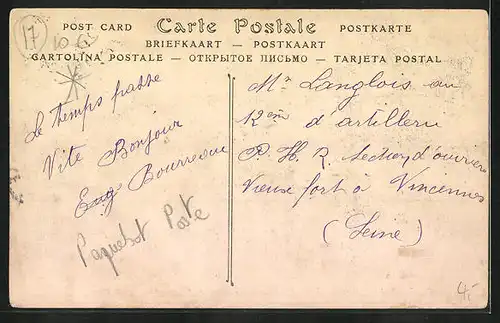 POST CARD Carte Postale POSTKARTE
BRIEFKAART — POSTKAART
CARTOLINA POSTALE — ОТКРЫТОЕ ПИСЬМО — TARJETA POSTAL
17
106
Le temps passe
Vite Bonjour
Eug Bourreau
Paquebot Poste
Mr Langlois au
12em d'artillerie
P. H. R. Section d'ouvriers
Vieux fort à Vincennes
(Seine)
4.-